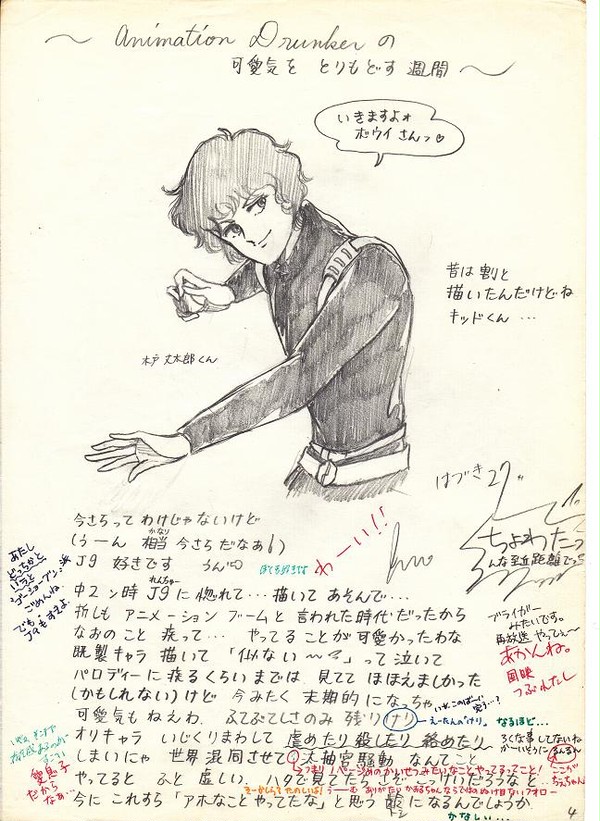 ～ Animation Drunkerの
可愛気を とりもどす 週間 ～
いきますよォ
ボウイさんっ♡
昔は 割と
描いたんだけどね
キッドくん …
木戸 丈太郎くん
はづき 27
ちょわたっ
んな至近距離でっ
今さらって わけじゃないけど
(うーん 相当 今さらだなあ)
かなり
J9 好きです
うん
ぼくも好きです
わーい!!
あたし
どっちかと
いうと
ごめんね
でも
J9もすきよ
れんちゅー
中2ン時 J9に 惚れて…描いて あそんで…
折しも アニメーション ブームと 言われた時代 だったから
なおのこと 疾って… やってることが 可愛かったわな
既製キャラ 描いて 「似ない～～?」って 泣いて
パロディーに 疾るくらい までは、見てて ほほえましかった
(かもしれない)けど 今みたく 末期的に なっちゃ
可愛気も ねえわ。 ふてぶてしさのみ 残りけり
えーたんの「けり」。
なるほど…
ブライガー
みたいです。
再放送 やってぇ〜
あかんね。
国映
つぶれたし
オリキャラ いじくりまわして 虐めたり 殺したり 絡めたり
ろくな事 してないね
がーいどうに
るんるん
しまいにゃ 世界 混同させて 太抽宮騒動 なんてこと
ここが
ちぇちゃん
つまり1ページめのかいせつみたいなことやってすってこと!
愛息子
だから
なぁ…
やってると ふと 虚しい。ハタで見てたらしさぞ こっけいだろうなと…
今に これすら 「アホなことやってたな」と思う 齢に なるんでしょうか
とし
かなしい…
4